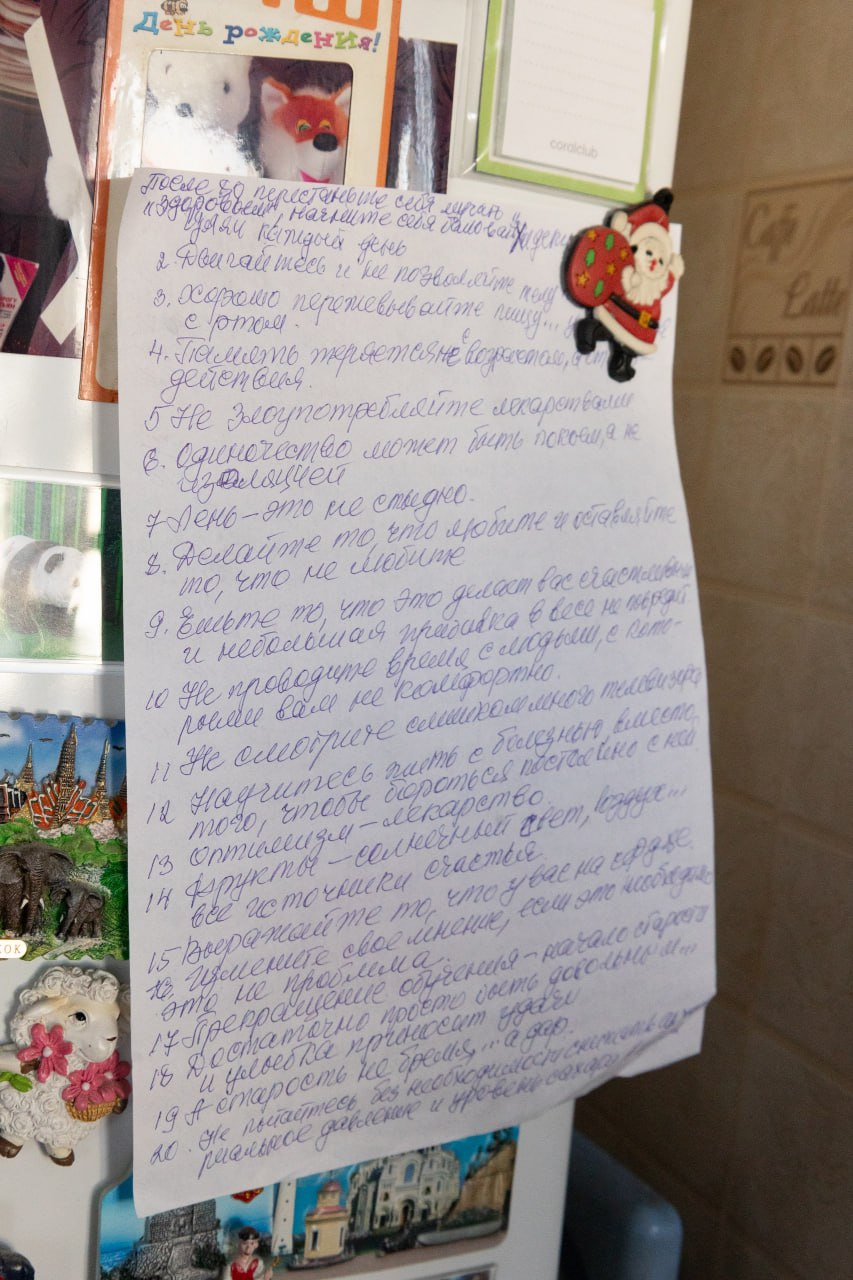 День рождения!
coralclub
Cafe
Latte
После 70 перестаньте себя мучать
"здоровьем", начните себя баловать
удачи каждый день
2. Двигайтесь и не позволяйте телу
3. Хорошо пережевывайте пищу...
с ртом.
4. Память теряется не с возрастом, а
действия.
5 Не злоупотребляйте лекарствами
6. Одиночество может быть покоем, а не
изоляцией
7 Лень – это не стыдно.
8. Делайте то, что любите и оставляйте
то, что не любите
9. Ешьте то, что это делает вас счастливыми
и небольшая прибавка в весе не повредит
10 Не проводите время с людьми, с кото-
рыми вам не комфортно.
11 Не смотрите слишком много телевизора
12 Научитесь жить с болезнью, вместо
того, чтобы бороться постоянно с ней
13 Оптимизм – лекарство
14 Фрукты – солнечный свет, воздух...
все источники счастья.
15 Выражайте то, что у вас на сердце.
16 Измените свое мнение, если это необходимо
это не проблема.
17 Прекращение обучения – начало старости
18 Достаточно просто быть довольным...
и улыбка приносит удачи
19 А старость не бремя,... а дар.
20. Не пытайтесь без необходимости снижать ар
риальное давление и уровень сахара
КОК